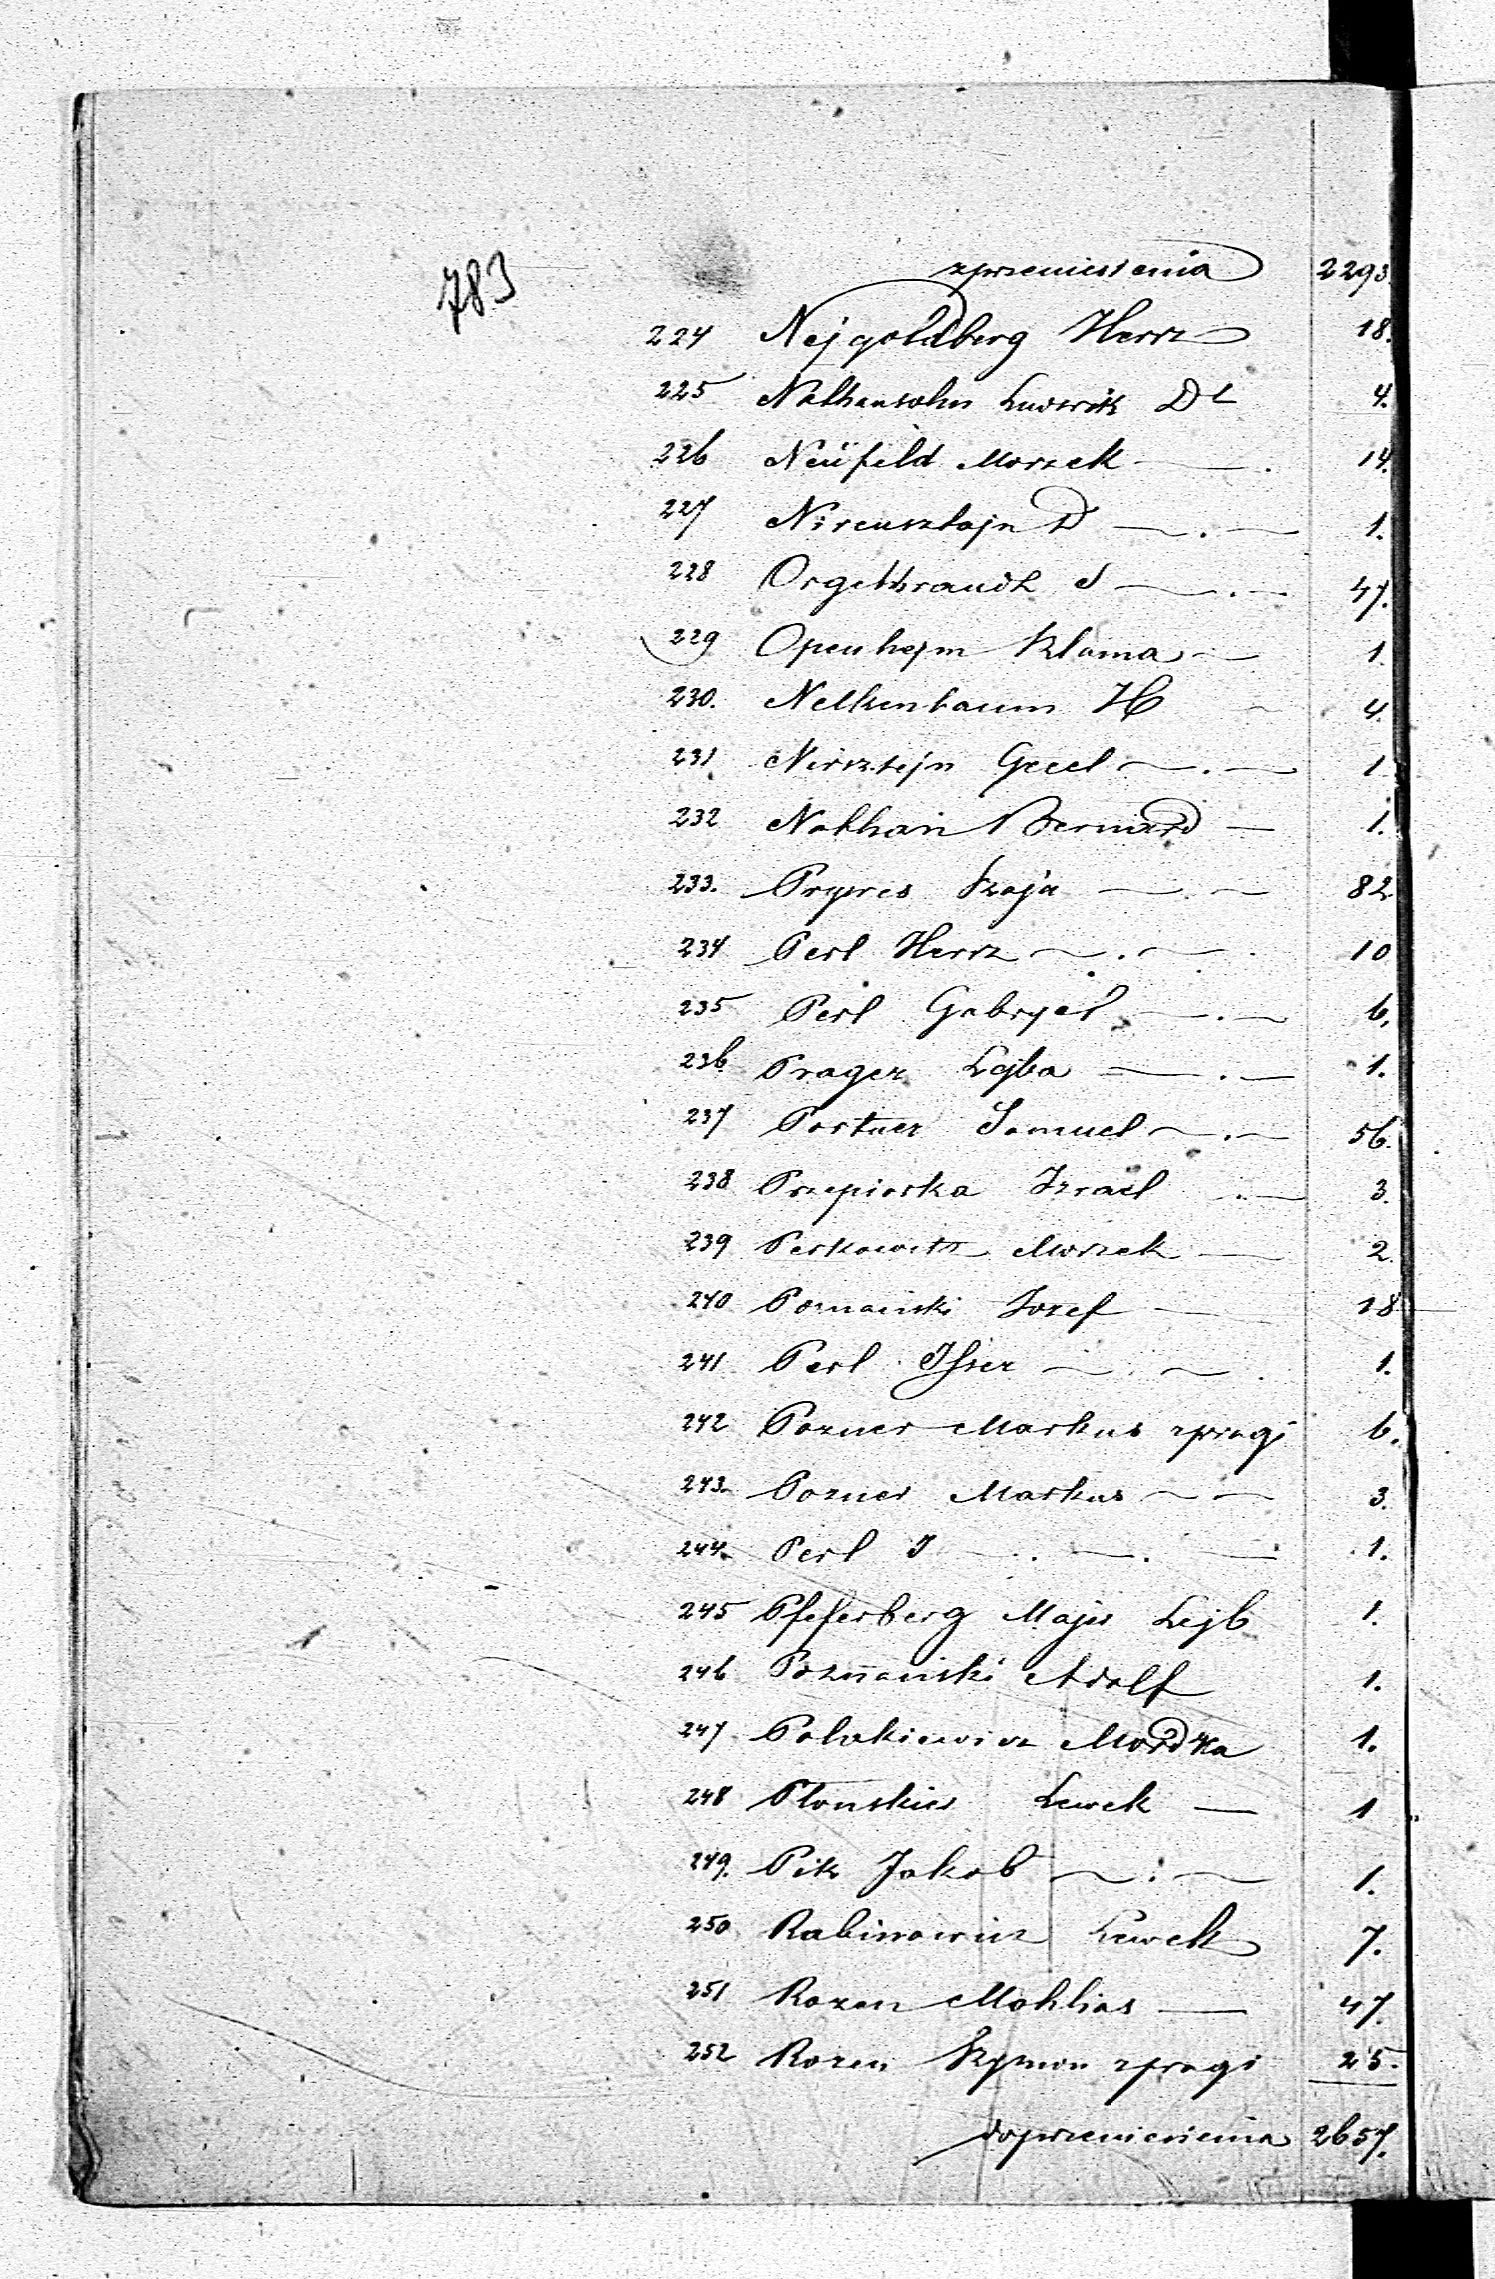 783
z przeniesienia 2293.
224 Nejgoldberg Hersz 18.
225 Nathansohn Ludwik Dr 4.
226 Neüfeld Moszek 14.
227 Nirensztajn D 1.
228 Orgelbrandt S 47.
229 Openhejm Szlama 1.
230. Nelkenbaum H 4.
231 Nirsztejn Gecel 1
232 Nathan Bernard 1.
233. Prywes Szaja 82.
234 Perl Hersz 10
235 Perl Gabryel 6.
236 Prager Lejba 1.
237 Portner Samuel 56.
238 Przepiorka Izrael 3.
239 Perkowitz Moszek 2.
240 Poznański Jozef 18
241 Perl Isser 1.
242 Pozner Markus z pragi 6.
243. Pozner Markus 3.
244. Perl J 1.
245 Pfeferberg Majer Lejb 1.
246 Poznański Adolf 1.
247 Polakiewicz Mordka 1.
248 Plonskier Lewek 1
249. Pik Jakob 1.
250 Rabinowicz Lewek 7.
251 Rozen Mathias 47.
252 Rozen Szymon z pragi 25.
do przeniesienia 2657.